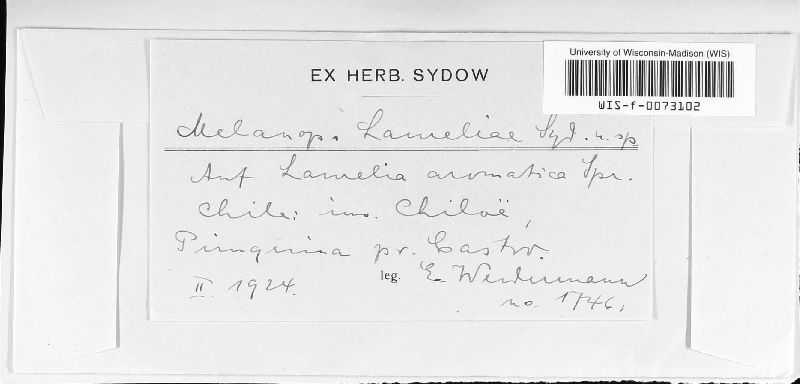 University of Wisconsin-Madison (WIS)
WIS-f-0073102
EX HERB. SYDOW
Melanops Lameliae Syd. n. sp
Auf Lamelia aromatica Spr.
Chile: ins. Chiloë,
pr. Castro.
II. 1924. leg. E. Werdermann
no. 1746.